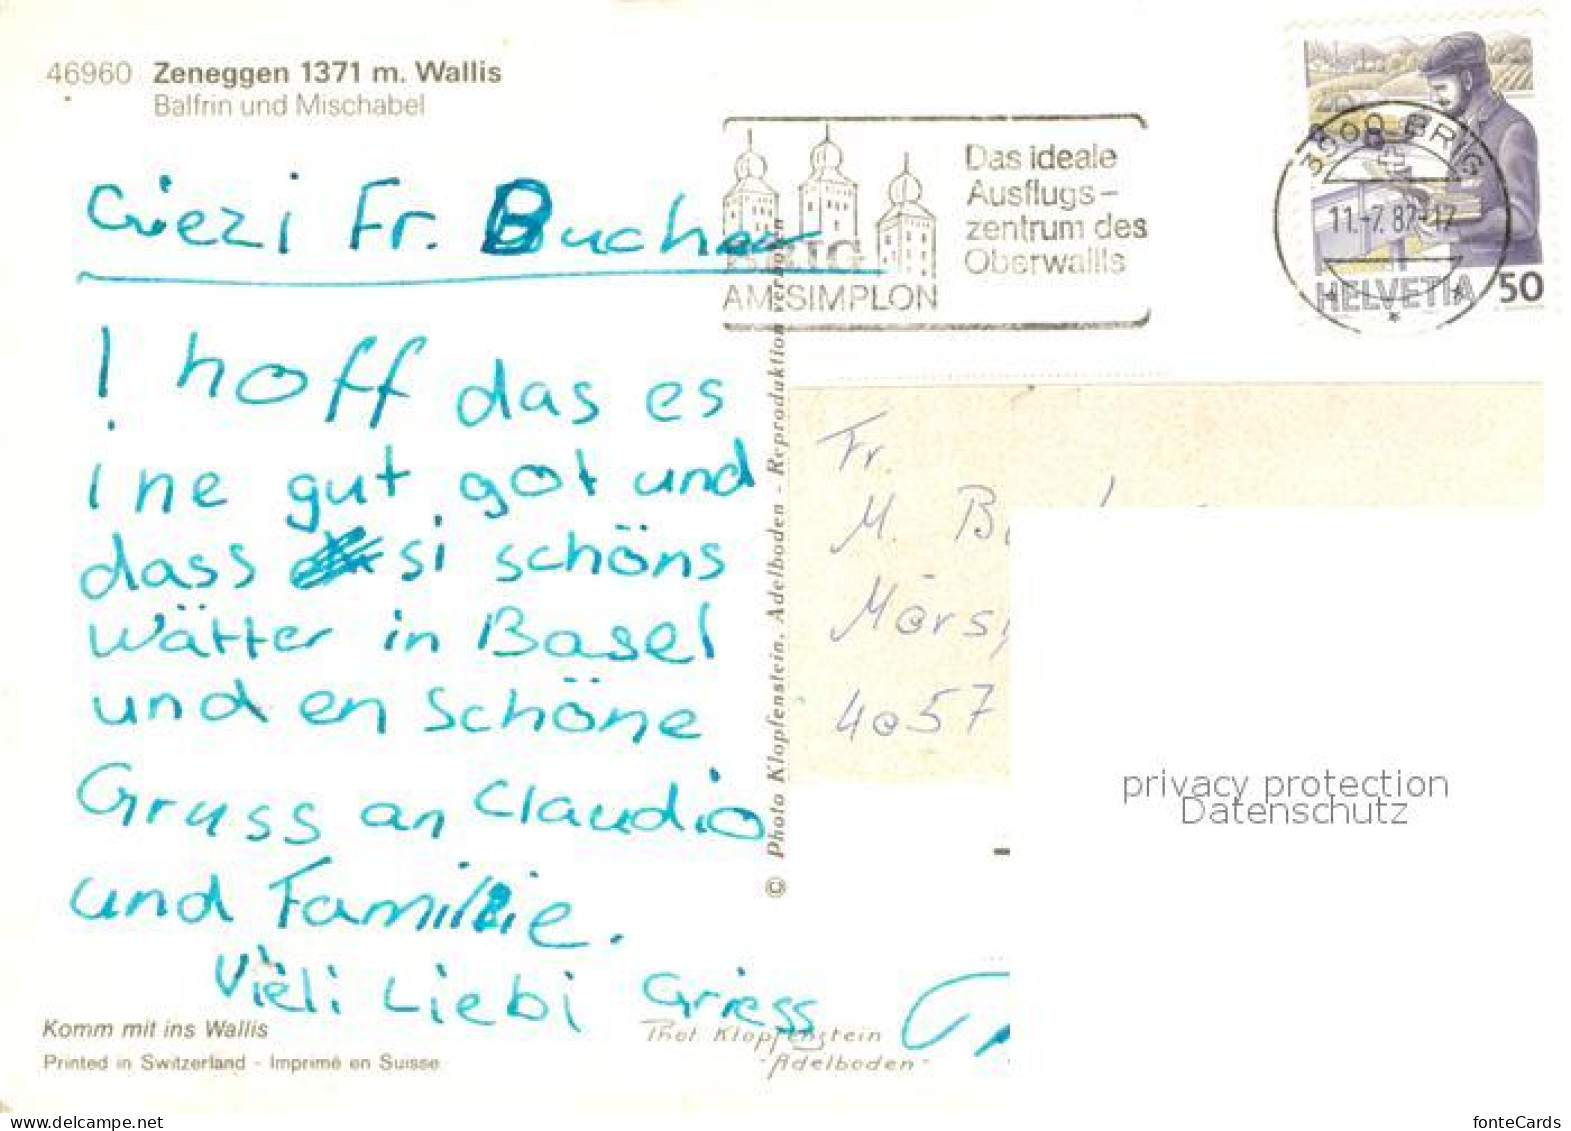 46960 Zeneggen 1371 m. Wallis
Balfrin und Mischabel
Griezi Fr. Bucher
I hoff das es
ine gut got und
dass si schöns
Wätter in Basel
und en schöne
Gruss an Claudio
und Familie.
Vieli Liebi Griess
Komm mit ins Wallis
Printed in Switzerland - Imprimé en Suisse
Phot Klopfenstein
"Adelboden"
© Photo Klopfenstein, Adelboden - Reproduktion verboten
BRIG
AM SIMPLON
Das ideale
Ausflugs-
zentrum des
Oberwallis
3900 BRIG
11.-7.87-17
HELVETIA 50
Fr.
M.
4057
privacy protection
Datenschutz
fonteCards